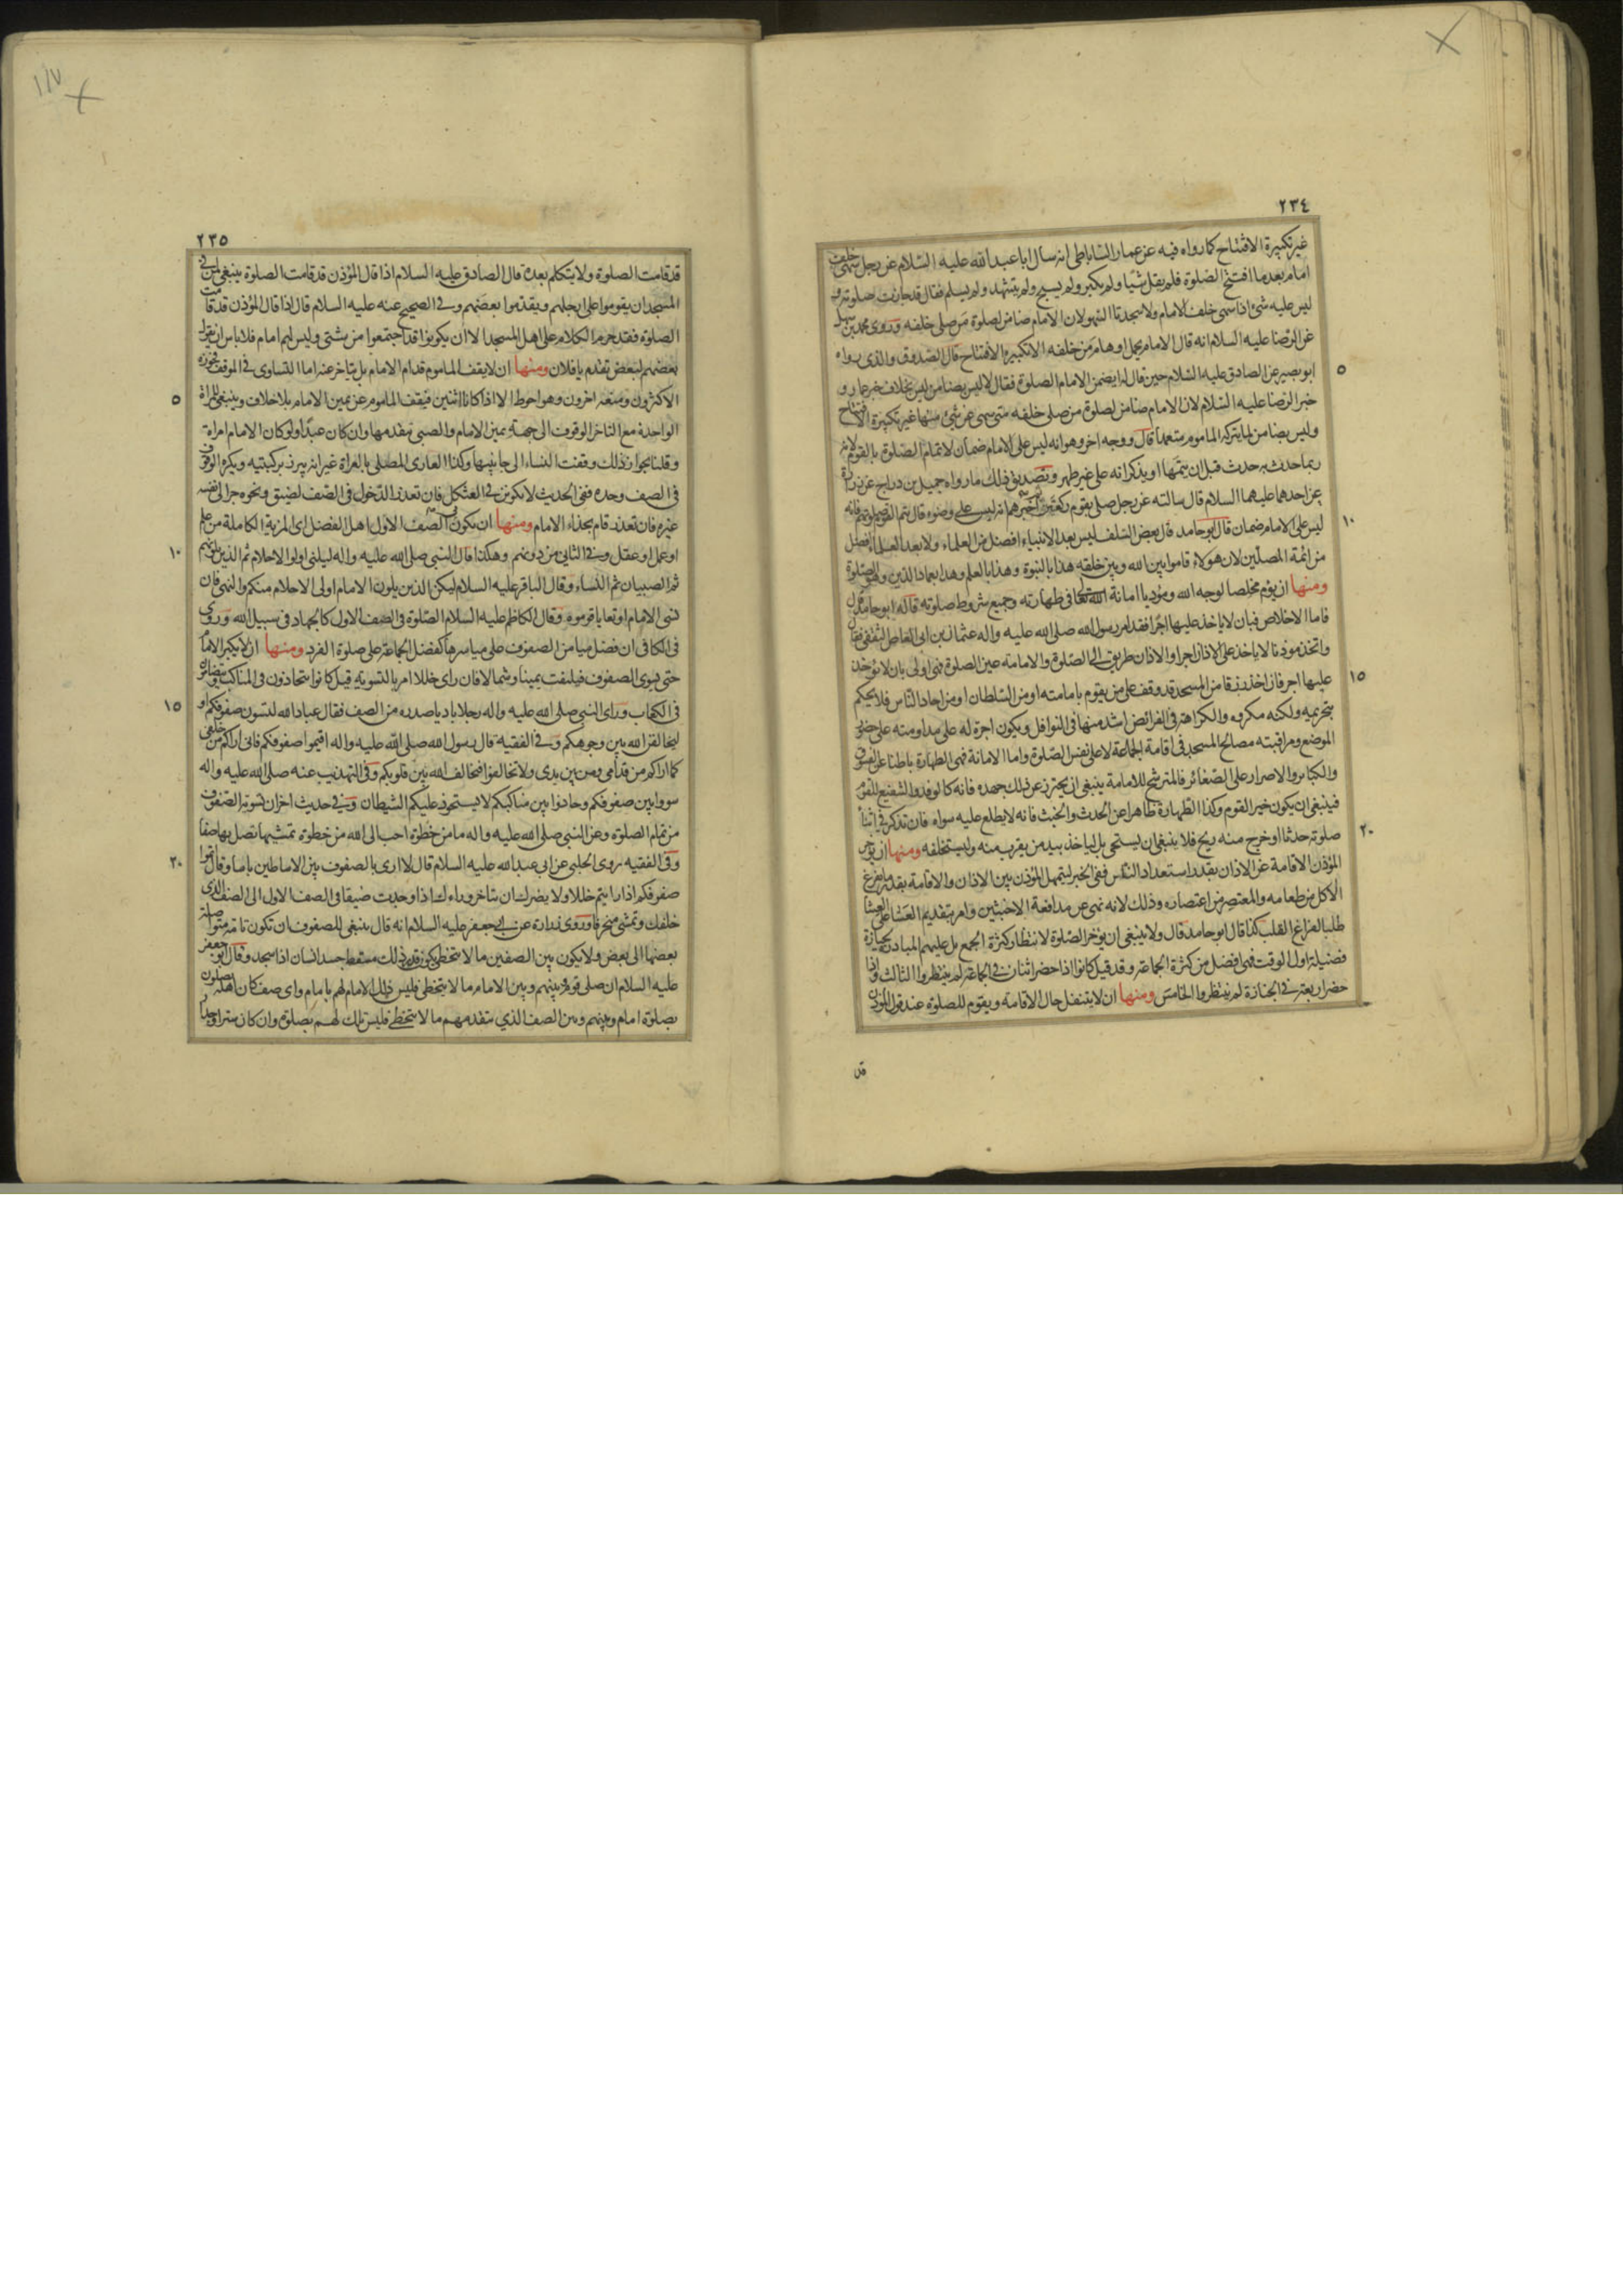 ٢٣٤
غير تكبيرة الافتتاح كما رواه فيه عن عمار الساباطى انه سال ابا عبد الله عليه السلام عن رجل سهى خلف
امام بعد ما افتتح الصلوة فلم يقل شيئا ولم يكبر ولم يسبح ولم يتشهد ولم يسلم فقال قد جازت صلوته و
ليس عليه شئ اذا سهى خلف الامام ولا سجدتا السهو لان الامام ضامن لصلوة من صلى خلفه وروى محمد بن سهل
عن الرضا عليه السلام انه قال الامام يحمل اوهام من خلفه الا تكبيرة الافتتاح قال الصدوق والذى رواه
٥
ابو بصير عن الصادق عليه السلام حين قال له ايضمن الامام الصلوة فقال لا ليس بضامن ليس بخلاف خبر عمار و
خبر الرضا عليه السلام لان الامام ضامن لصلوة من صلى خلفه متى سهى عن شئ منها غير تكبيرة الافتتاح
وليس بضامن لما يتركه الماموم متعمدا قال ووجه اخر وهو انه ليس على الامام ضمان لاتمام الصلوة بالقوم لانه
ربما حدث به حدث قبل ان يتمها او يذكر انه على غير طهر وتصديق ذلك ما رواه جميل بن دراج عن زرارة
عن احدهما عليهما السلام قال سالته عن رجل صلى بقوم ركعتين ثم اخبرهم انه ليس على وضوء قال يتم القوم صلوتهم فانه
١٠
ليس على الامام ضمان قال ابو حامد قال بعض السلف ليس بعد الانبياء افضل من العلماء ولا بعد العلماء افضل
من ائمة المصلين لان هولاء قاموا بين الله وبين خلقه هذا بالنبوة وهذا بالعلم وهذا بعماد الدين وهو الصلوة
ومنها ان يؤم مخلصا لوجه الله ومؤديا امانة الله تعالى فى طهارته وجميع شروط صلوته قاله ابو حامد قال
فاما الاخلاص فبان لا ياخذ عليها اجرا فقد امر رسول الله صلى الله عليه واله عثمان بن ابى العاص الثقفى فقال
واتخذ موذنا لا ياخذ على الاذان اجرا والاذان طريق الى الصلوة والامامة عين الصلوة فهى اولى بان لا يؤخذ
١٥
عليها اجر فان اخذ رزقا من المسجد قد وقف على من يقوم بامامته او من السلطان او من احاد الناس فلا يحكم
بتحريمه ولكنه مكروه والكراهة فى الفرائض اشد منها فى النوافل ويكون اجرة له على مداومته على حضور
الموضع ومراقبته مصالح المسجد فى اقامة الجماعة لا على نفس الصلوة واما الامانة فهى الطهارة باطنا عن الفسوق
والكبائر والاصرار على الصغائر فالمترشح للامامة ينبغى ان يحترز عن ذلك بجهده فانه كالوفد والشفيع للقوم
فينبغى ان يكون خير القوم وكذا الطهارة ظاهرا عن الحدث والخبث فانه لا يطلع عليه سواه فان تذكر فى اثناء
٢٠
صلوته حدثا او خرج منه ريح فلا ينبغى ان يستحى بل لياخذ بيد من يقرب منه وليستخلفه ومنها ان يؤخر
المؤذن الاقامة عن الاذان بقدر استعداد الناس ففى الخبر ليتمهل المؤذن بين الاذان والاقامة بقدر ما يفرغ
الاكل من طعامه والمعتصر من اعتصاره وذلك لانه نهى عن مدافعة الاخبثين وامر بتقديم العشاء على العشا
طلبا لفراغ القلب كذا قال ابو حامد قال ولا ينبغى ان يؤخر الصلوة لانتظار كثرة الجمع بل عليهم المبادرة لحيازة
فضيلة اول الوقت فهى افضل من كثرة الجماعة وقد قيل كانوا اذا حضر اثنان فى الجماعة لم ينتظروا الثالث واذا
حضر اربعة فى الجنازة لم ينتظروا الخامس ومنها ان لا يتنفل حال الاقامة ويقوم للصلوة عند قول المؤذن
قد
١١٧
٢٣٥
قد قامت الصلوة ولا يتكلم بعده قال الصادق عليه السلام اذا قال المؤذن قد قامت الصلوة ينبغى لمن فى
المسجد ان يقوموا على ارجلهم ويقدموا بعضهم وفى الصحيح عنه عليه السلام قال اذا قال المؤذن قد قامت
الصلوة فقد حرم الكلام على اهل المسجد الا ان يكونوا قد اجتمعوا من شتى وليس لهم امام فلا باس ان يقول
بعضهم لبعض تقدم يا فلان ومنها ان لا يقف الماموم قدام الامام بل يتاخر عنه اما التساوى فى الموقف فجوزه
٥
الاكثرون ومنعه اخرون وهو احوط الا اذا كانا اثنين فيقف الماموم عن يمين الامام بلا خلاف وينبغى للمراة
الواحدة مع التاخر الوقوف الى جهة يمين الامام والصبى يتقدمها وان كان عبدا ولو كان الامام امراة
وقلنا بجواز ذلك وقفت النساء الى جانبيها وكذا العارى المصلى بالعراة غير انه يبرز بركبتيه ويكره الوقوف
فى الصف وحده ففى الحديث لا تكونن فى العثكل فان تعذر الدخول فى الصف لضيق ونحوه جر الى نفسه
غيره فان تعذر قام بحذاء الامام ومنها ان يكون فى الصف الاول اهل الفضل اى المزية الكاملة من علم
١٠
او عمل او عقل وفى الثانى من دونهم وهكذا قال النبى صلى الله عليه واله ليلنى اولوا الاحلام ثم الذين يلونهم
ثم الصبيان ثم النساء وقال الباقر عليه السلام ليكن الذين يلون الامام اولى الاحلام منكم والنهى فان
نسى الامام او تعايا قوموه وقال الكاظم عليه السلام الصلوة فى الصف الاول كالجهاد فى سبيل الله وروى
فى الكافى ان فضل ميامن الصفوف على مياسرها كفضل الجماعة على صلوة الفرد ومنها ان لا يكبر الامام
حتى يسوى الصفوف فيلتفت يمينا وشمالا فان راى خللا امر بالتسوية قيل كانوا يتحاذون فى المناكب ويتضامون
١٥
فى الكعاب وراى النبى صلى الله عليه واله رجلا باديا صدره من الصف فقال عباد الله لتسون صفوفكم او
ليخالفن الله بين وجوهكم وفى الفقيه قال رسول الله صلى الله عليه واله اقيموا صفوفكم فانى اراكم من خلفى
كما اراكم من قدامى ومن بين يدى ولا تخالفوا فيخالف الله بين قلوبكم وفى التهذيب عنه صلى الله عليه واله
سووا بين صفوفكم وحاذوا بين مناكبكم لا يستحوذ عليكم الشيطان وفى حديث اخر ان تسوية الصفوف
من تمام الصلوة وعن النبى صلى الله عليه واله ما من خطوة احب الى الله من خطوة تمشيها تصل بها صفا
٢٠
وفى الفقيه روى الحلبى عن ابى عبد الله عليه السلام قال لا ارى بالصفوف بين الاساطين باسا وقال اتموا
صفوفكم اذا رايتم خللا ولا يضرك ان تتاخر وراءك اذا وجدت ضيقا فى الصف الاول الى الصف الذى
خلفك وتمشى منحرفا وروى زرارة عن ابى جعفر عليه السلام انه قال ينبغى للصفوف ان تكون تامة متواصلة
بعضها الى بعض ولا يكون بين الصفين ما لا يتخطى يكون قدر ذلك مسقط جسد انسان اذا سجد وقال ابو جعفر
عليه السلام ان صلى قوم بينهم وبين الامام ما لا يتخطى فليس ذلك الامام لهم بامام واى صف كان اهله يصلون
بصلوة امام وبينهم وبين الصف الذي يتقدمهم ما لا يتخطى فليس تلك لهم بصلوة وان كان ستر او جدار